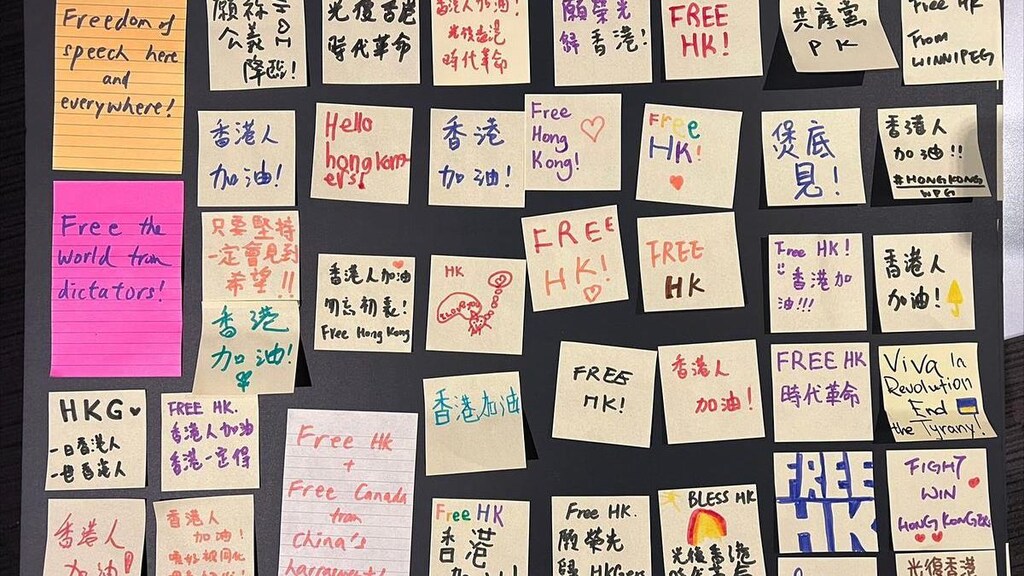 Freedom of
speech here
and
everywhere!
願
公義
降臨!
光復香港
時代革命
香港人加油!
光復香港
時代革命
願榮光
歸香港!
FREE
HK!
共產黨
PK
Free HK
From
WINNIPEG
香港人
加油!
Hello
hongkong
ers!
香港
加油!
Free
Hong
Kong!
Free
HK!
煲底
見!
香港人
加油!!
#HONGKONG
WPG
Free the
world from
dictators!
只要堅持
一定會見到
希望!!
香港
加油!
香港人加油
勿忘初衷!
Free Hong Kong
HK
FREE
HK!
FREE
HK
Free HK!
香港加
油!!!
香港人
加油!
HKG
一日香港人
一世香港人
FREE HK.
香港人加油
香港一定得
Free HK
+
Free Canada
from
China's
harrasment!
香港加油
FREE
HK!
香港人
加油!
FREE HK
時代革命
Viva In
Revolution
End
the Tyranny!
香港人
加油!
香港人
加油!
Free HK
香港
加油!
Free HK.
願榮光
歸 HKers
BLESS HK
光復香港
時代革命
FREE
HK
FIGHT
WIN
HONG KONGERS
光復香港